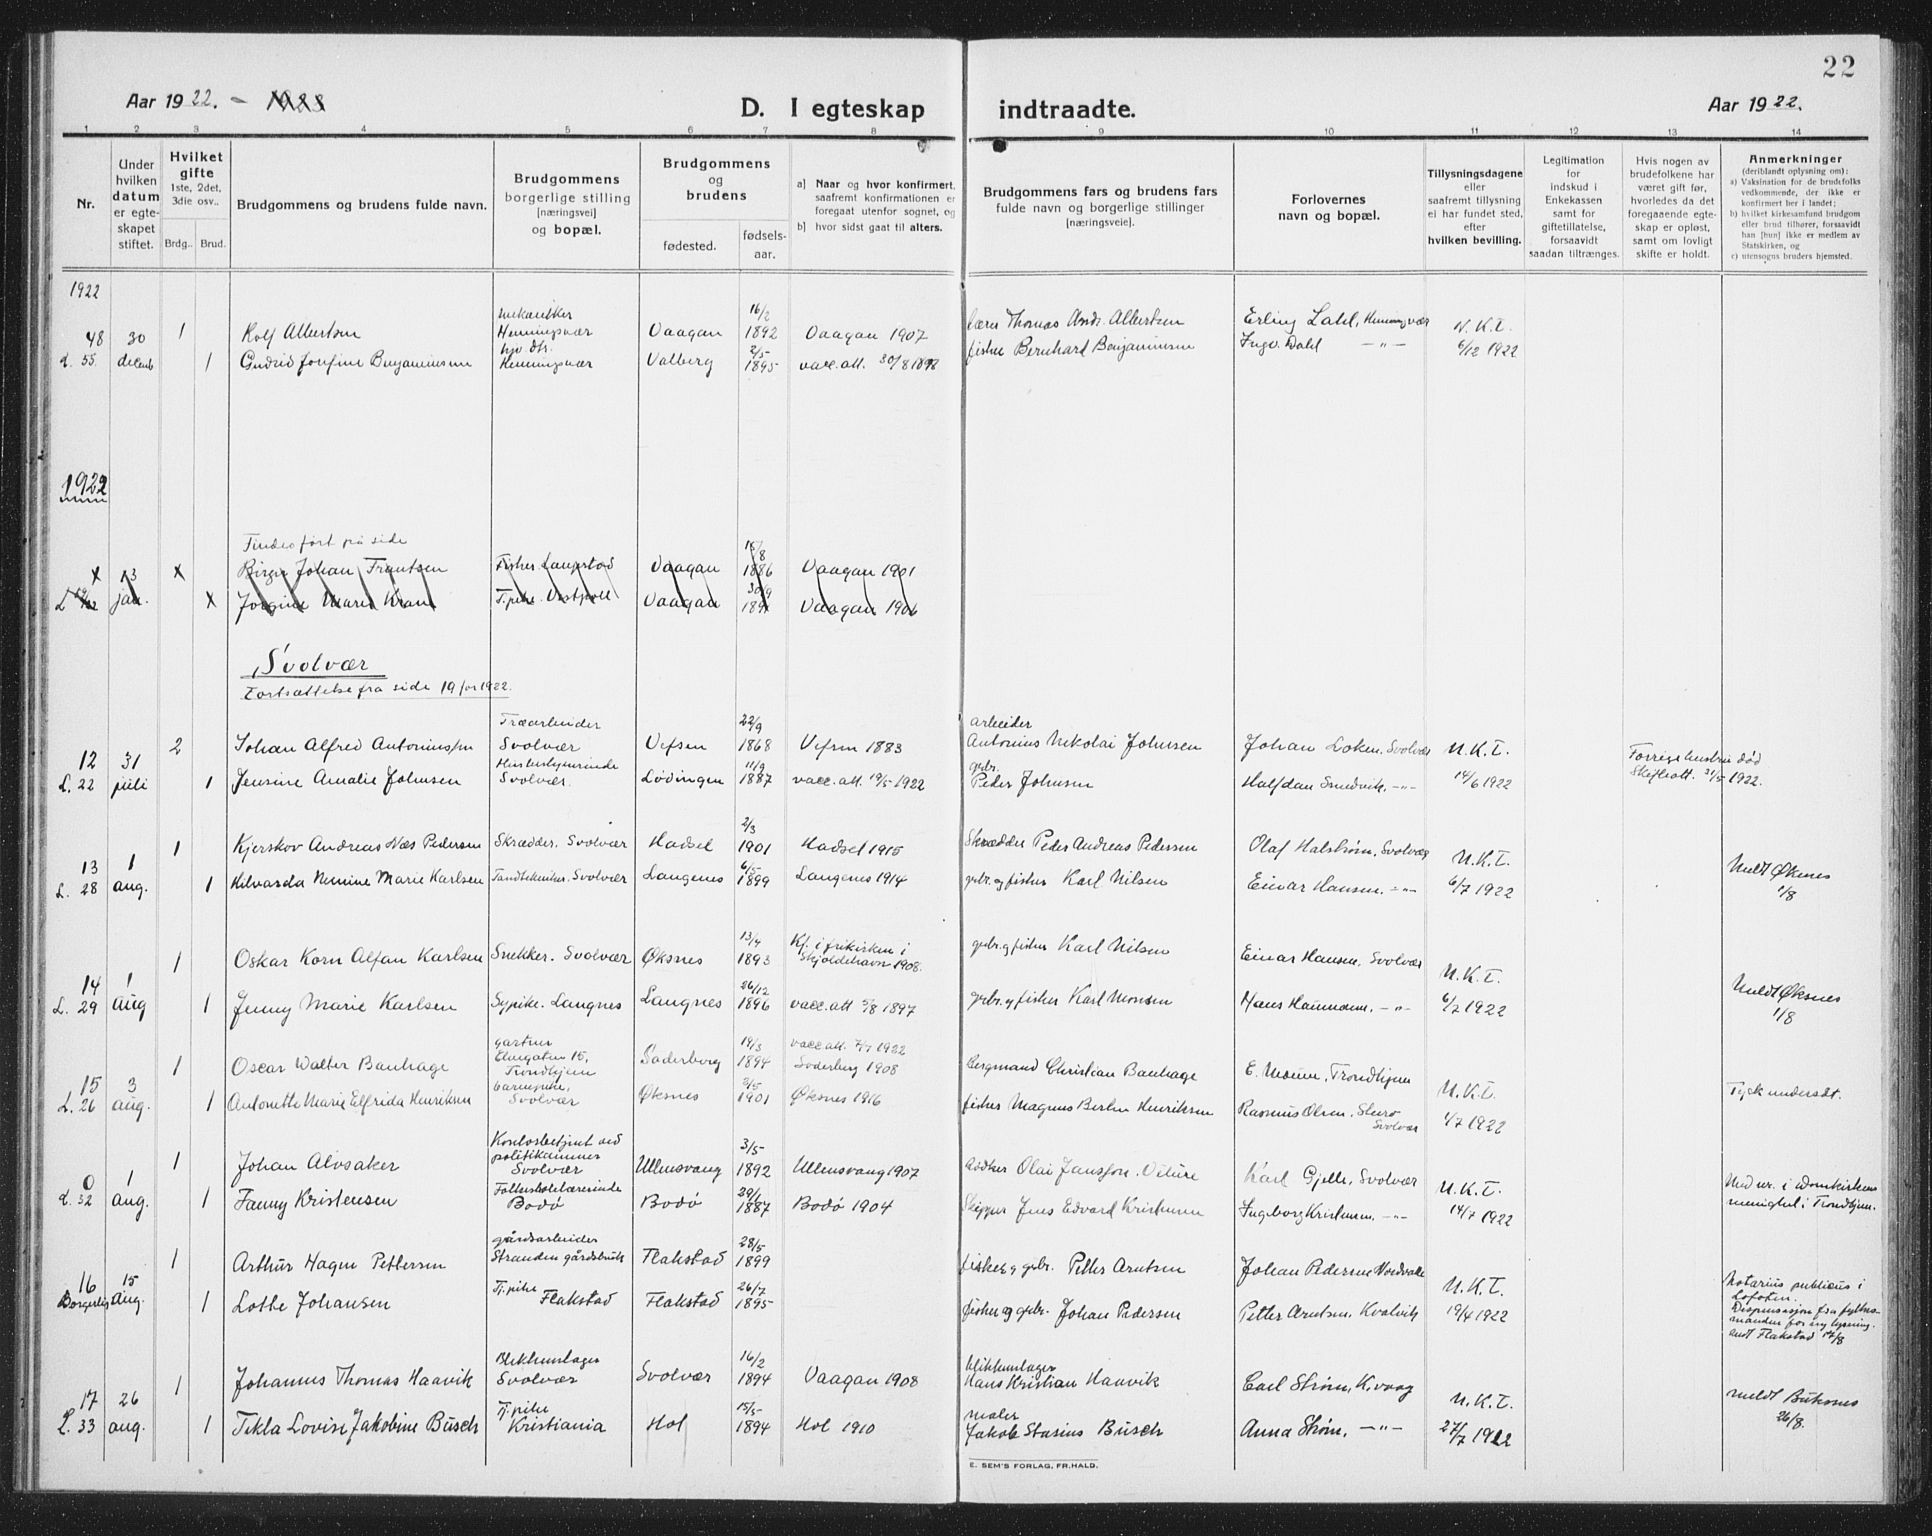 22
Aar 1922. - 1923
D. I egteskap indtraadte.
Aar 1922.
1 2 3 4 5 6 7 8 9 10 11 12 13 14
Nr.
Under hvilken datum er egteskapet stiftet.
Hvilket gifte 1ste, 2det, 3die osv..
Brdg.. Brud.
Brudgommens og brudens fulde navn.
Brudgommens borgerlige stilling [næringsvei] og bopæl.
Brudgommens og brudens
fødested. fødsels-aar.
a] Naar og hvor konfirmert, saafremt konfirmationen er foregaat utenfor sognet, og
b] hvor sidst gaat til alters.
Brudgommens fars og brudens fars fulde navn og borgerlige stillinger [næringsveie].
Forlovernes navn og bopæl.
Tillysningsdagene eller saafremt tillysning ei har fundet sted, efter hvilken bevilling.
Legitimation for indskud i Enkekassen samt for giftetillatelse, forsaavidt saadan tiltrænges.
Hvis nogen av brudefolkene har været gift før, hvorledes da det foregaaende egteskap er opløst, samt om lovligt skifte er holdt.
Anmerkninger (deriblandt oplysning om):
a) Vaksination for de brudefolks vedkommende, der ikke er konfirmert her i landet;
b) hvilket kirkesamfund brudgom eller brud tilhører, forsaavidt han [hun] ikke er medlem av Statskirken, og
c) utensogns bruders hjemsted.
1922
48 30 1 Rolf Albertsen mekaniker Henningsvær Vaagan 16/2 1892 Vaagan 1907 Thomas Andr. Albertsen Erling Dahl, Henningsvær N.K.T.
L. 55 decemb 1 Gudrid Josefine Benjaminsen Henningsvær Valberg 2/5 1895 vacc.att. 30/8 1898 fisker Bernhard Benjaminsen Ingv. Dahl -"- 6/12 1922
1922
Findes ført på side
x 13 x Birger Johan Frantsen Fisker Laupstad Vaagan 15/8 1886 Vaagan 1901
jan. x Jorgine Marie Kram Tj.pike Vestpoll Vaagan 30/9 1891 Vaagan 1906
Svolvær
Fortsættelse fra side 19 for 1922.
12 31 2 Johan Alfred Antoniussen Træarbeider Svolvær Vefsen 22/9 1868 Vefsen 1883 arbeider Antonius Nikolai Johnsen Johan Loken, Svolvær N.K.T. Forrige hustru død
L. 22 juli 1 Jensine Amalie Johnsen Husbestyrerinde Svolvær Lødingen 11/9 1887 vacc.att. 19/5 1922 grbr. Peder Johnsen Halfdan Sundvik, -"- 14/6 1922 Skifteatt. 31/5 1922.
13 1 1 Kjerskov Andreas Næs Pedersen Skrædder. Svolvær Hadsel 2/3 1901 Hadsel 1915 Skrædder Peder Andreas Pedersen Olaf Halstrøm, Svolvær N.K.T. Meldt Øksnes
L. 28 aug. 1 Hilvarda Nemine Marie Karlsen Tandtekniker. Svolvær Langenes 6/5 1899 Langenes 1914 grbr. og fisker Karl Nilsen Einar Hansen, -"- 6/7 1922 1/8
14 1 1 Oskar Korn Alfan Karlsen Snekker. Svolvær Øksnes 13/4 1893 Kf. i frikirken i Skjoldehavn 1908. grbr. og fisker Karl Nilsen Einar Hansen, Svolvær N.K.T. Meldt Øksnes
L. 29 aug 1 Jenny Marie Karlsen Sypike. Langnes Langnes 26/12 1896 vacc.att 5/8 1897 grbr. og fisker Karl Monsen Hans Hammern, -"- 6/7 1922 1/8
15 3 1 Oscar Walter Banhage gartner Elvegaten 15, Trondhjem Søderborg 19/3 1894 vacc att. 7/7 1922 Søderborg 1908 Bergmand Christian Banhage E. Moum, Trondhjem N.K.T. Tysk undersåt.
L. 26 aug. 1 Antonette Marie Elfrida Henriksen barnepike, Svolvær Øksnes 2/5 1901 Øksnes 1916 fisker Magnus Berlin Henriksen Rasmus Olsen, Svolvær 1/7 1922
0 1 1 Johan Alvsaker Kontorbetjent ved politikammer Svolvær Ullensvang 3/5 1892 Ullensvang 1907 Olai Jansson Karl Gjelle, Svolvær N.K.T. Med nr. i Domkirkens
L. 32 aug. 1 Fanny Kristensen Folkeskolelærerinde Bodø Bodø 29/1 1887 Bodø 1904 Skipper Jens Edvard Kristensen Ingeborg Kristensen, -"- 14/7 1922 menighet i Trondhjem.
16 15 1 Arthur Hagen Pettersen gårdsarbeider Stranden gårdsbruk Flakstad 28/5 1899 fisker og grbr. Petter Arntsen Johan Pedersen N.K.T. Notarius publicus i Lofoten.
Borgerlig Aug. 1 Lothe Johansen Tj.pike Flakstad Flakstad 26/7 1895 fisker og grbr. Johan Pedersen Petter Arntsen, Kvalvik 19/4 1922 Dispensasjon fra fylkesmanden for ny lysning. Flakstad 14/8
17 26 1 Johannes Thomas Haavik Blikkenslager Svolvær Svolvær 16/2 1894 Vaagan 1908 blikkenslager Hans Kristian Haavik Carl Strøm, K.vaag N.K.T. meldt Buksnes
L. 33 aug. 1 Tekla Lovise Jakobine Busch Tj.pike Kristiania Hol 15/5 1894 Hol 1910 maler Jakob Stasius Busch Anna Strøm, -"- 27/7 1922 26/8.
E. SEM'S FORLAG, FR.HALD.